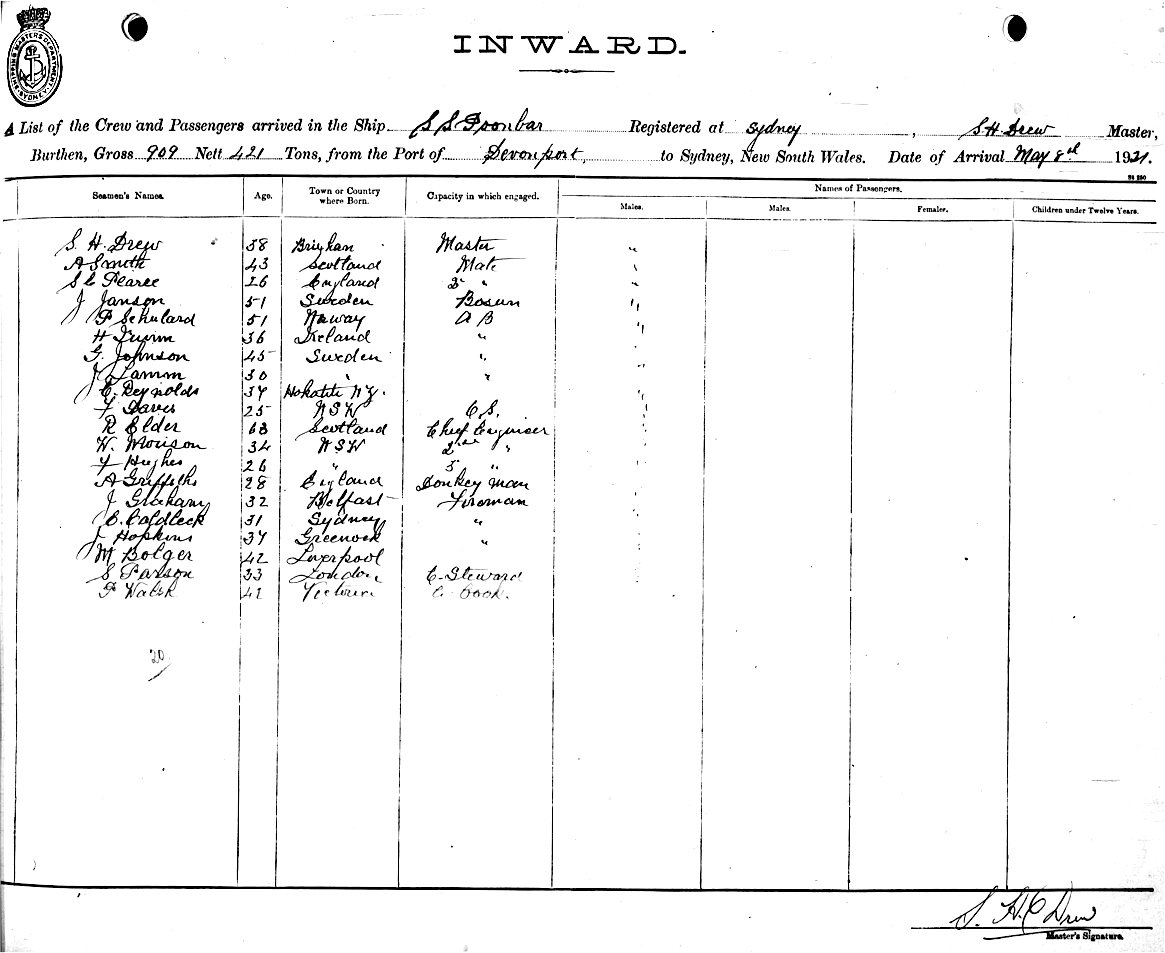 SHIPPING MASTERS DEPARTMENT SYDNEY
INWARD.
A List of the Crew and Passengers arrived in the Ship S S Poonbar Registered at Sydney, S H Drew Master,
Burthen, Gross 909 Nett 421 Tons, from the Port of Devonport, to Sydney, New South Wales. Date of Arrival May 8th 1921.
Seamen's Names. Age. Town or Country where Born. Capacity in which engaged. Names of Passengers.
Males. Males. Females. Children under Twelve Years.
S. H. Drew 58 Master "
A Smith 43 Scotland Mate "
Pearce 26 England "
J Janson 51 Sweden Bosun "
P Schulard 51 Norway A B "
H 36 Ireland " "
G. Johnson 45 Sweden " "
J Lamm 30 " " "
C. Reynolds 34 N Z. "
Davis 25 N S W "
R Elder Scotland Chief Engineer "
W. Morison 34 N S W 2nd " "
Hughes 26 " 3 " "
A Griffiths 28 England Donkey Man "
J 32 Belfast Fireman "
31 Sydney " "
J Hopkins 34 Greenock " "
M Bolger 42 Liverpool
S Parson 33 London, C. Steward
P Walsh 41 Victoria Cook.
20
S. H. C Drew
Master's Signature.